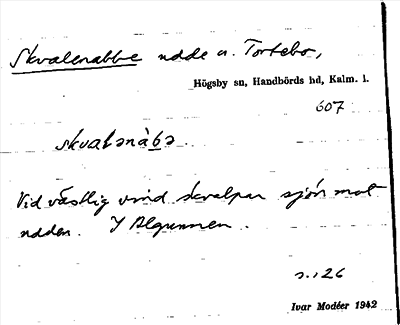 Skvalenabbe udde u. Tortebo,
Högsby sn, Handbörds hd, Kalm. l.
607
skvalənàbə
Vid västlig vind skvalpar sjön mot
udden. I Algunnen.
s. 126
Ivar Modéer 1942